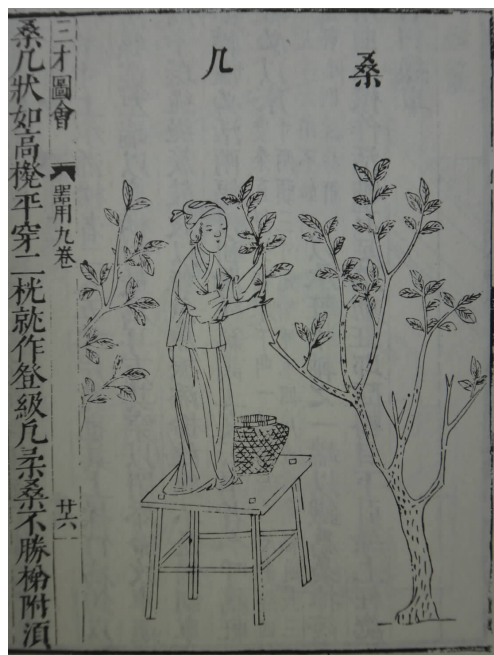 桑几
三才圖會 器用九卷 廿六
桑几狀如高櫈平穿二桄就作登級凡柔桑不勝梯附須